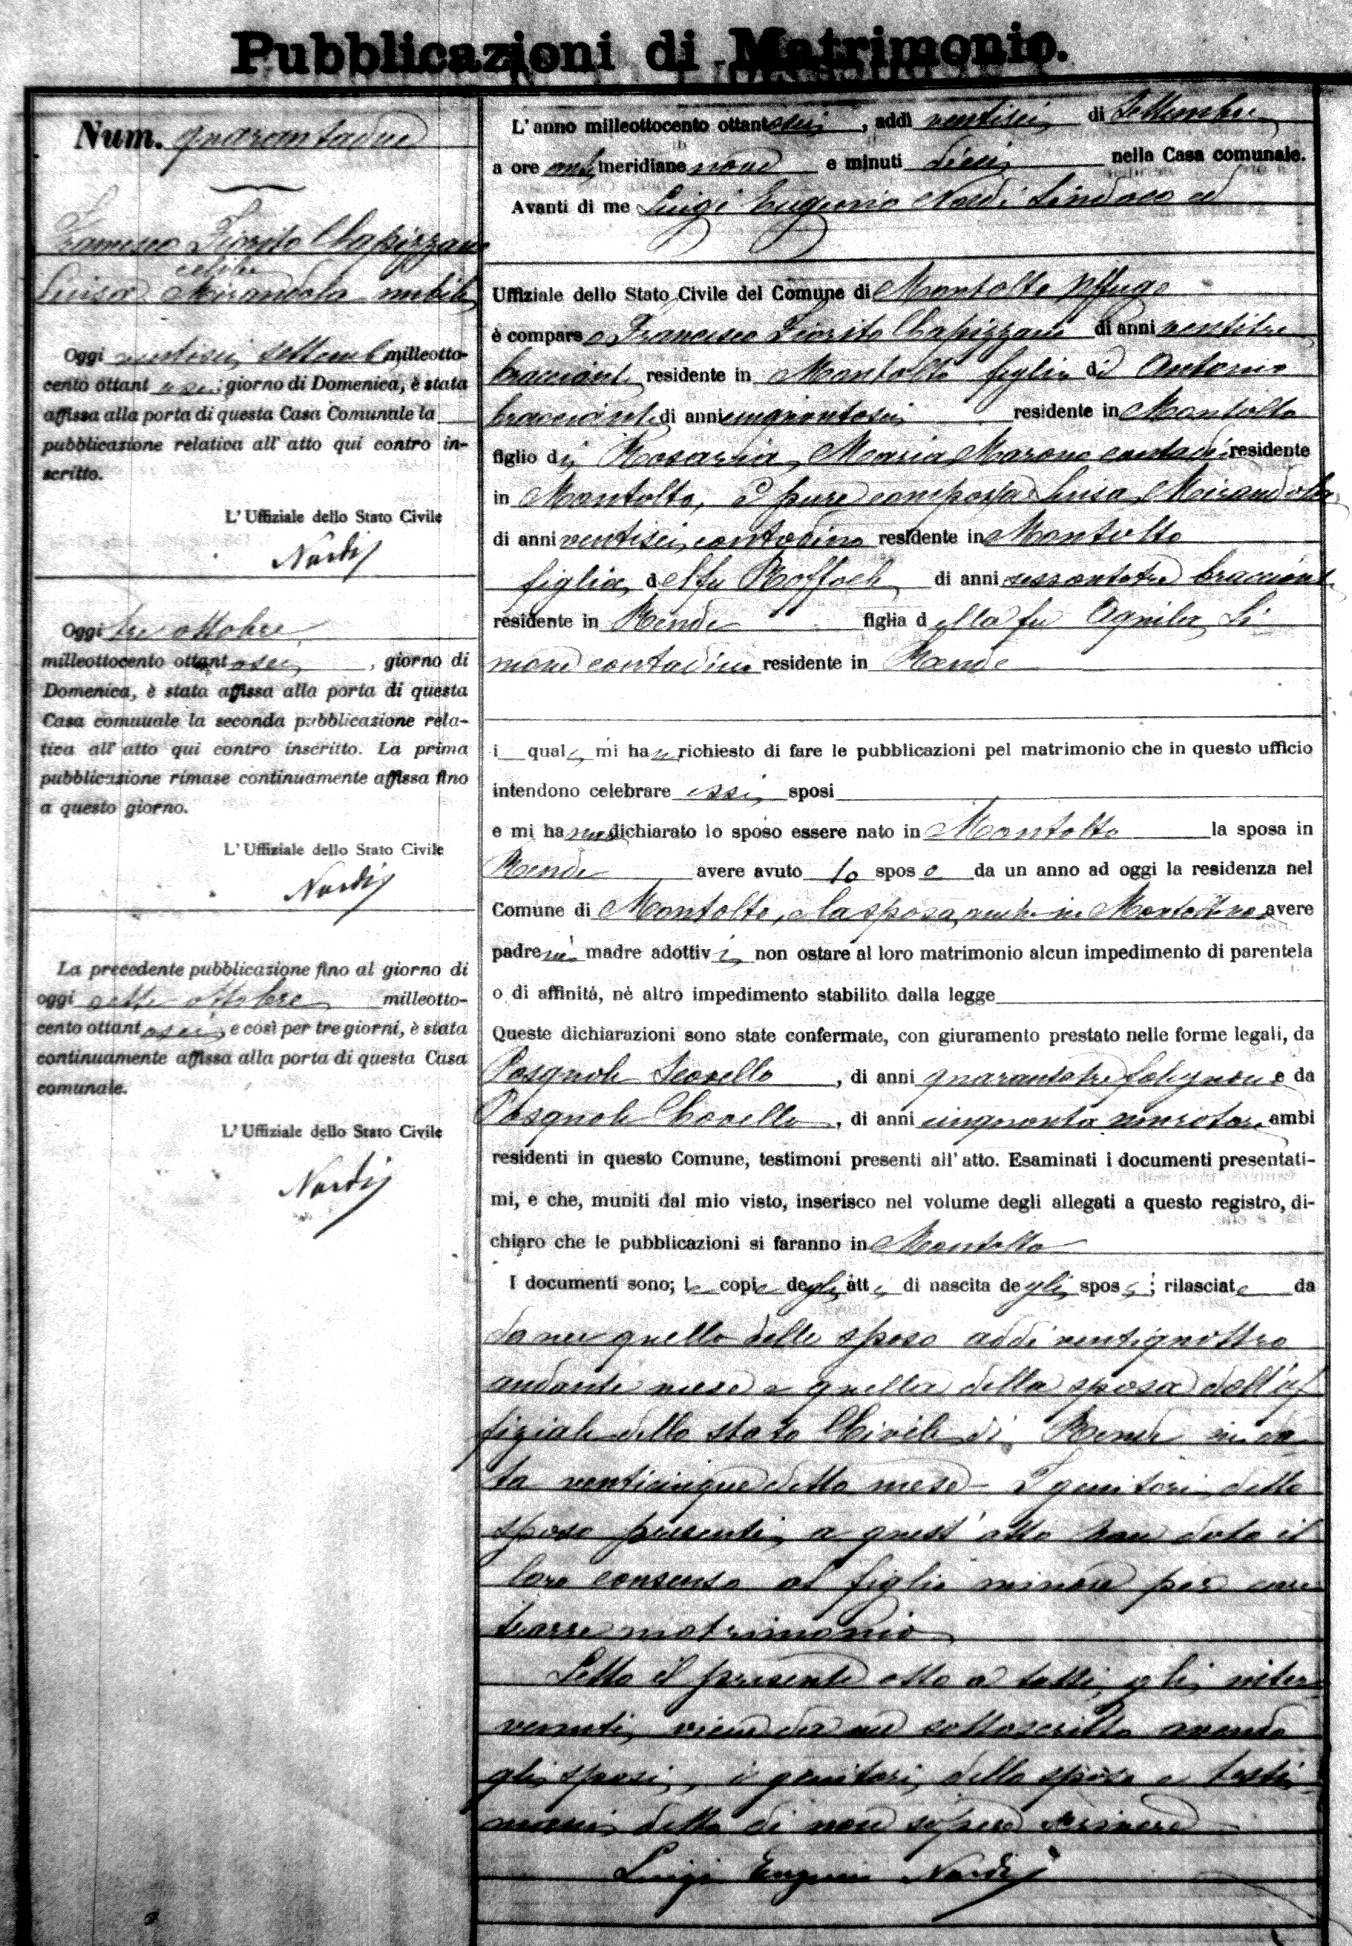 Pubblicazioni di Matrimonio.
Num. quarantadue
Francesco Fiorito Chapizzano
celibe
Luisa Mirandola nubile
Oggi ventisei settembre milleotto-
cento ottantasei giorno di Domenica, è stata
affissa alla porta di questa Casa Comunale la
pubblicazione relativa all' atto qui contro in-
scritto.
L' Uffiziale dello Stato Civile
Nardi
Oggi tre ottobre
milleottocento ottantasei, giorno di
Domenica, è stata affissa alla porta di questa
Casa comunale la seconda pubblicazione rela-
tiva all' atto qui contro inscritto. La prima
pubblicazione rimase continuamente affissa fino
a questo giorno.
L' Uffiziale dello Stato Civile
Nardi
La precedente pubblicazione fino al giorno di
oggi ottobre milleotto-
cento ottantasei, e così per tre giorni, è stata
continuamente affissa alla porta di questa Casa
comunale.
L' Uffiziale dello Stato Civile
Nardi
L' anno milleottocento ottantasei, addì ventisei di Settembre
a ore antimeridiane nove e minuti dieci nella Casa comunale.
Avanti di me Luigi Eugenio Nardi Sindaco ed
Uffiziale dello Stato Civile del Comune di Montalto Uffugo
è comparso Francesco Fiorito Chapizzano di anni ventitre
bracciante residente in Montalto figlio di Antonio
bracciante di anni cinquantasei residente in Montalto
figlio di Rosaria Maria Marono contadi residente
in Montalto, è pure comparsa Luisa Mirandola
di anni ventisei contadina residente in Montalto
figlia del fu Raffaele di anni sessantatre bracciante
residente in Rende figlia della fu Agnila Si
mone contadina residente in Rende
i quali mi han richiesto di fare le pubblicazioni pel matrimonio che in questo ufficio
intendono celebrare essi sposi
e mi hanno dichiarato lo sposo essere nato in Montalto la sposa in
Rende avere avuto lo sposo da un anno ad oggi la residenza nel
Comune di Montalto, e la sposa anche in Montalto non avere
padre nè madre adottivi non ostare al loro matrimonio alcun impedimento di parentela
o di affinità, nè altro impedimento stabilito dalla legge
Queste dichiarazioni sono state confermate, con giuramento prestato nelle forme legali, da
Pasquale Scovello, di anni quarantatre falegname e da
Pasquale Covello, di anni cinquanta muratore ambi
residenti in questo Comune, testimoni presenti all' atto. Esaminati i documenti presentati-
mi, e che, muniti dal mio visto, inserisco nel volume degli allegati a questo registro, di-
chiaro che le pubblicazioni si faranno in Montalto
I documenti sono; le copie degli atti di nascita degli sposi; rilasciate da
da me quella dello sposo addì ventiquattro
andante mese e quella della sposa dall'uf
fiziale dello stato Civile di Rende in da
ta venticinque detto mese - I genitori dello
sposo presenti a quest' atto han dato il
loro consenso al figlio minore per con
trarre matrimonio
Letto il presente atto a tutti gli inter
venuti, viene da me sottoscritto avendo
gli sposi, i genitori dello sposo e testi
moni detto di non sapere scrivere
Luigi Eugenio Nardi